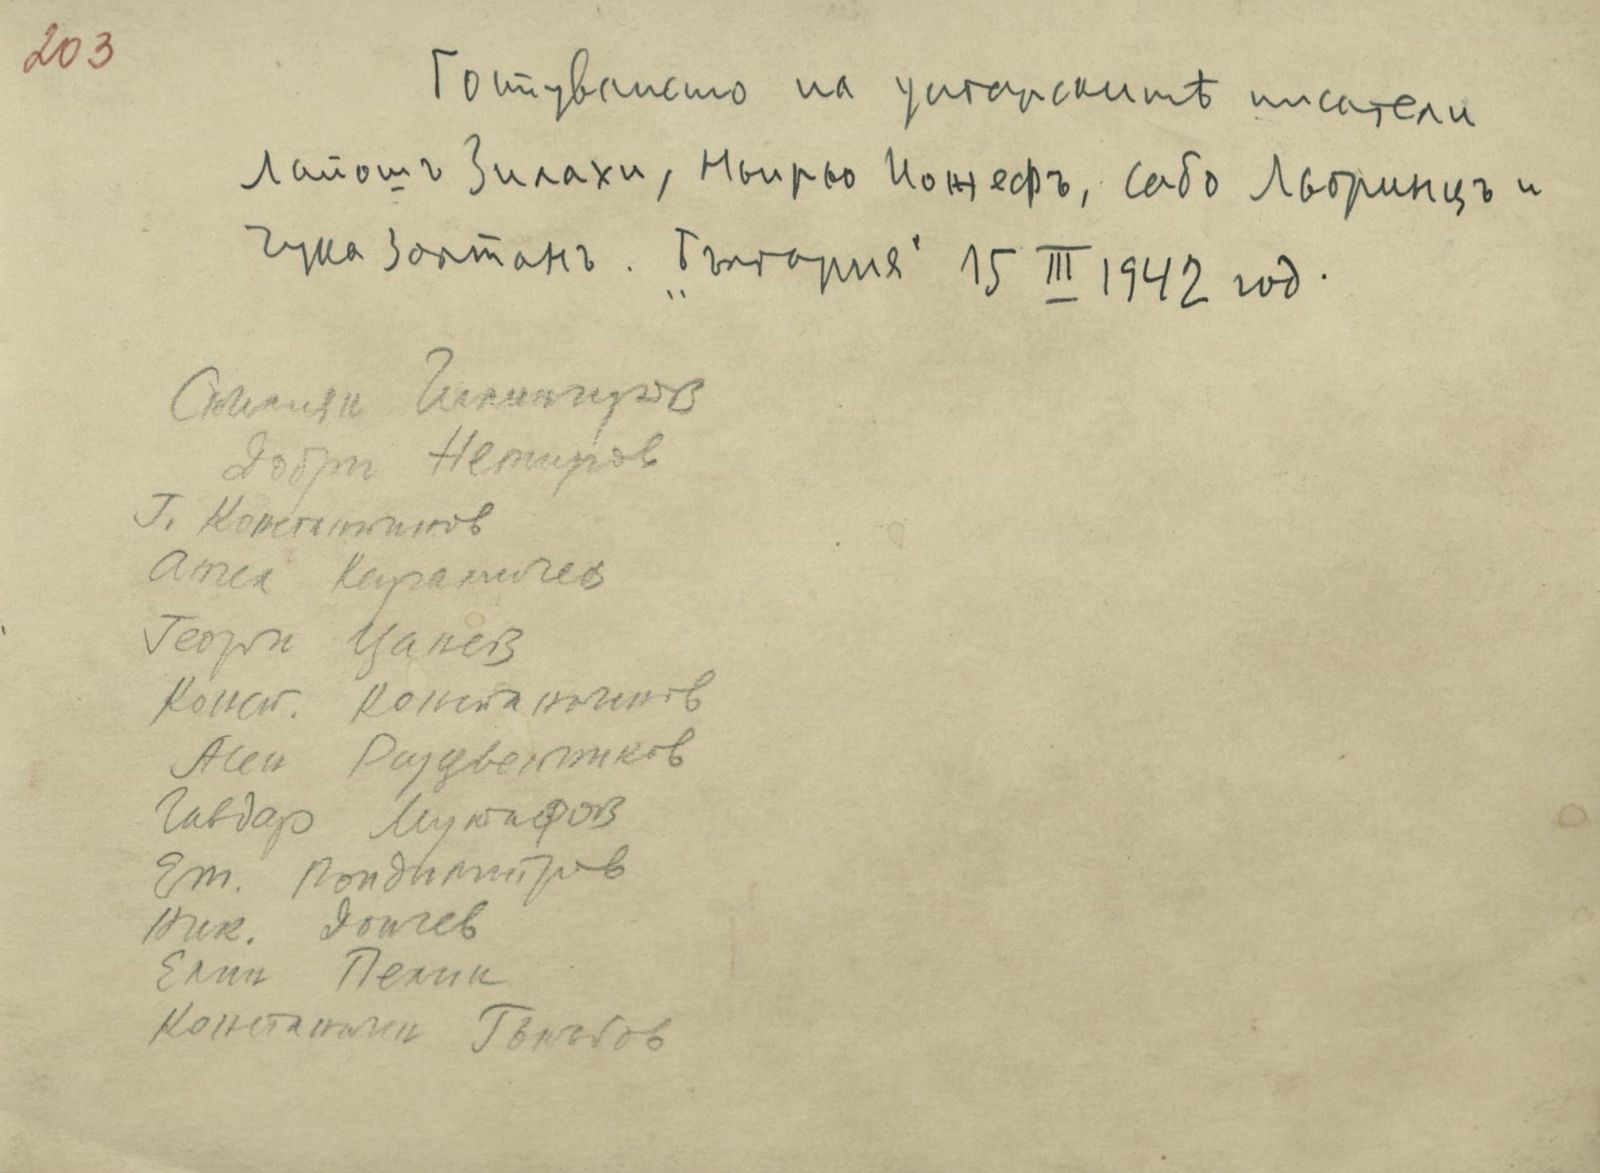 203
Гостуването на унгарскитѣ писатели
Лайошъ Зилахи, Ньирьо Иожефъ, Сабо Льоринцъ и
Чука Золтанъ. „България“ 15 III 1942 год.
Смилян Чилингиров
Добри Немиров
Г. Константинов
Ангел Каралийчев
Георги Цанев
Конст. Константинов
Асен Разцветников
Чавдар Мутафов
Ем. Попдимитров
Ник. Дончев
Елин Пелин
Константин Гълъбов